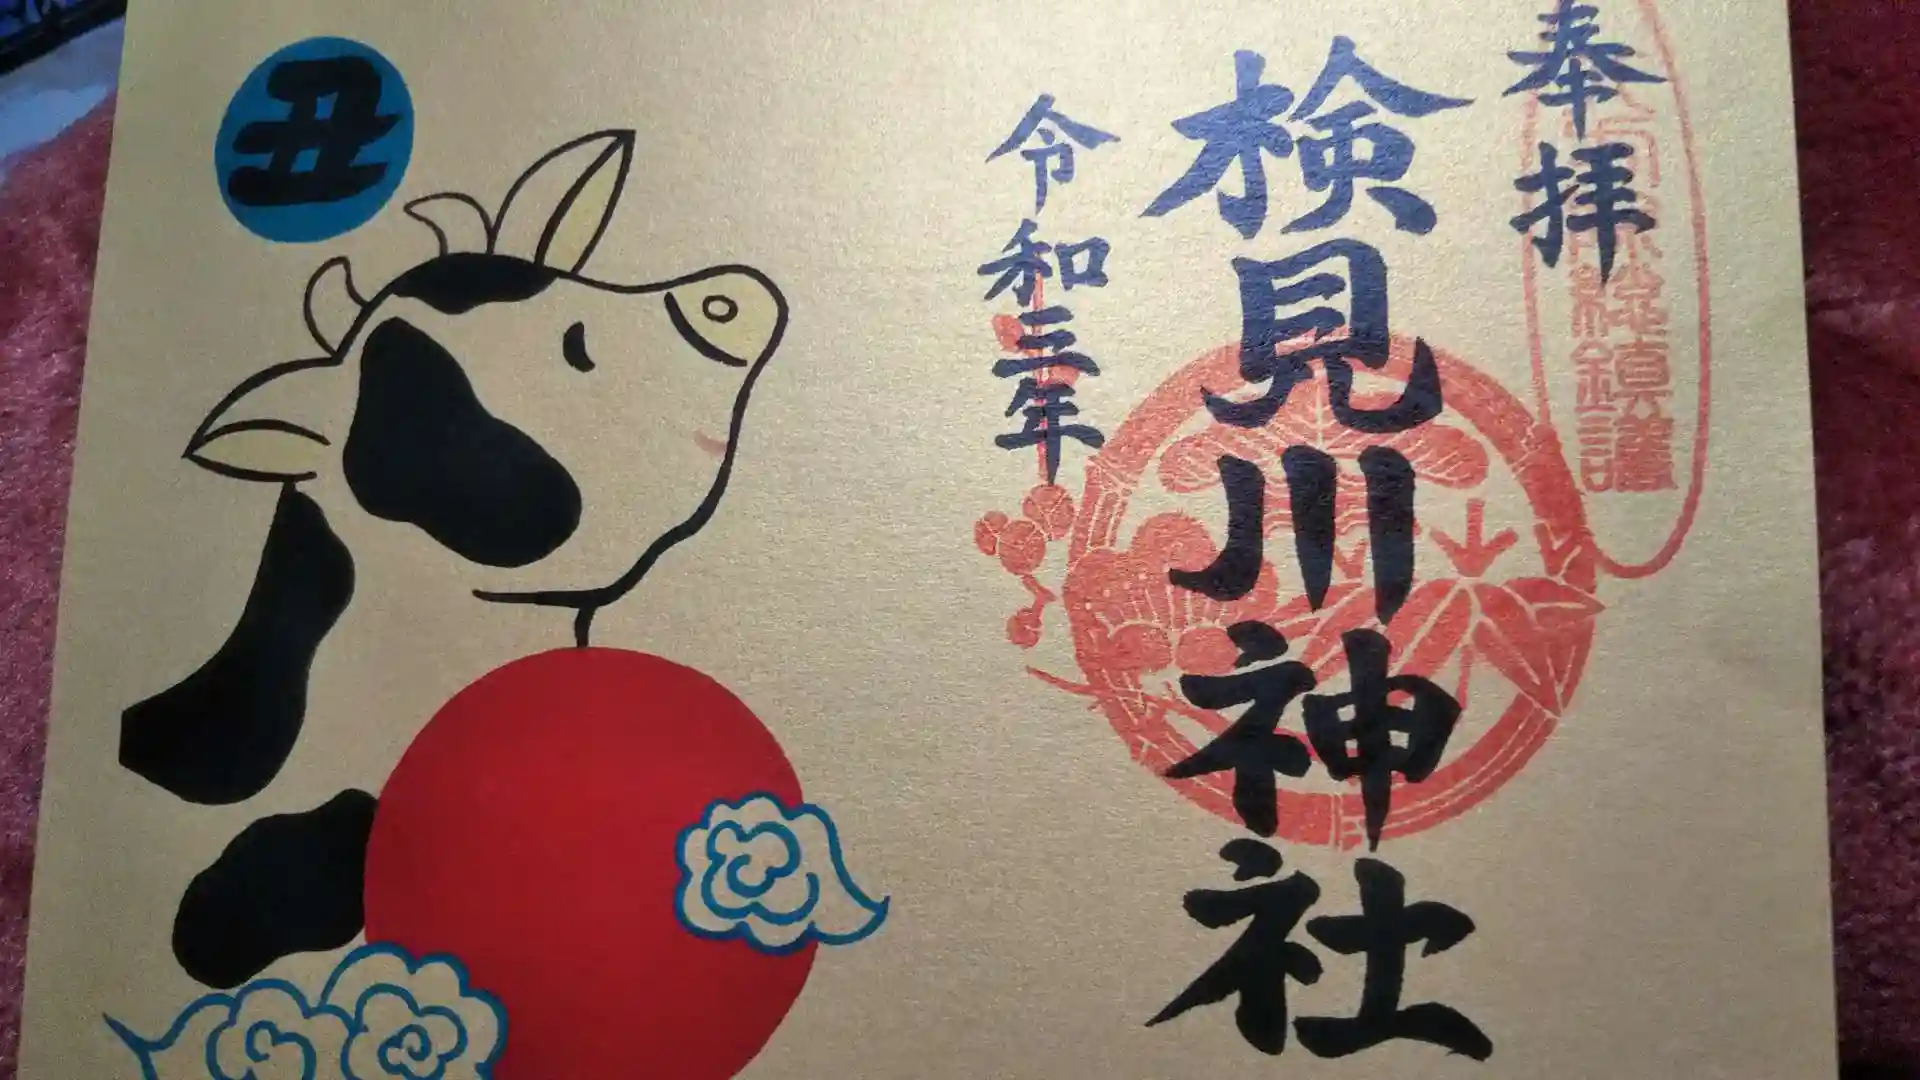 奉拝
検見川神社
令和三年
丑